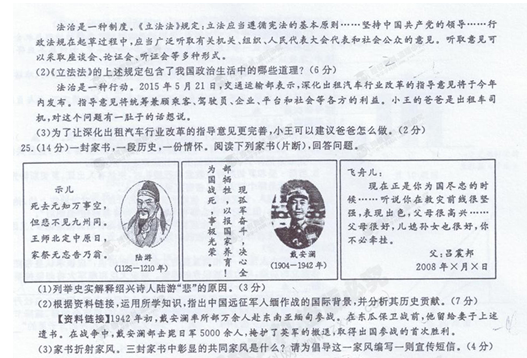 法治是一种制度。《立法法》规定:立法应当遵循宪法的基本原则……坚持中国共产党的领导……行
政法规在起草过程中,应当广泛听取有关机关、组织、人民代表大会代表和社会公众的意见。听取意见可
以采取座谈会、论证会、听证会等多种形式。
(2)《立法法》的上述规定包含了我国政治生活中的哪些道理?(6分)
法治是一种行动。2015年5月21日,交通运输部表示,深化出租汽车行业改革的指导意见将于今年
内发布。指导意见将统筹兼顾乘客、驾驶员、企业、平台和社会等各方的利益。小王的爸爸是出租车司
机,对这个问题有一肚子的话想说。
(3)为了让深化出租汽车行业改革的指导意见更完善,小王可以建议爸爸怎么做。(2分)
25.(14分)一封家书,一段历史,一份情怀。阅读下列家书(片断),回答问题。
示儿
死去元知万事空,
但悲不见九州同。
王师北定中原日,
家祭无忘告乃翁。
陆游
(1125—1210年)
现孤军奋
戴安澜
(1904—1942年)
飞舟儿:
现在正是你为国尽忠的时
候……听说你在救灾前线很坚
强,表现出色,父母很高兴……
父母很好,儿媳孙女也很好,你
不必牵挂。
父:吕震邦
2008年×月×日
(1)列举史实解释绍兴诗人陆游“悲”的原因。(3分)
(2)根据资料链接,运用所学知识,指出中国远征军入缅作战的国际背景,并分析其历史贡献。(7分)
【资料链接】1942年初,戴安澜率所部万余人赴东南亚缅甸参战。在东瓜保卫战前,他留给妻子上述
遗书。在战争中,戴安澜部击毙日军5000余人,掩护了英军的撤退,取得出国参战的首次胜利。
(3)家书折射家风。三封家书中彰显的共同家风是什么?请为倡导这一家风编写一则宣传短信。(4分)